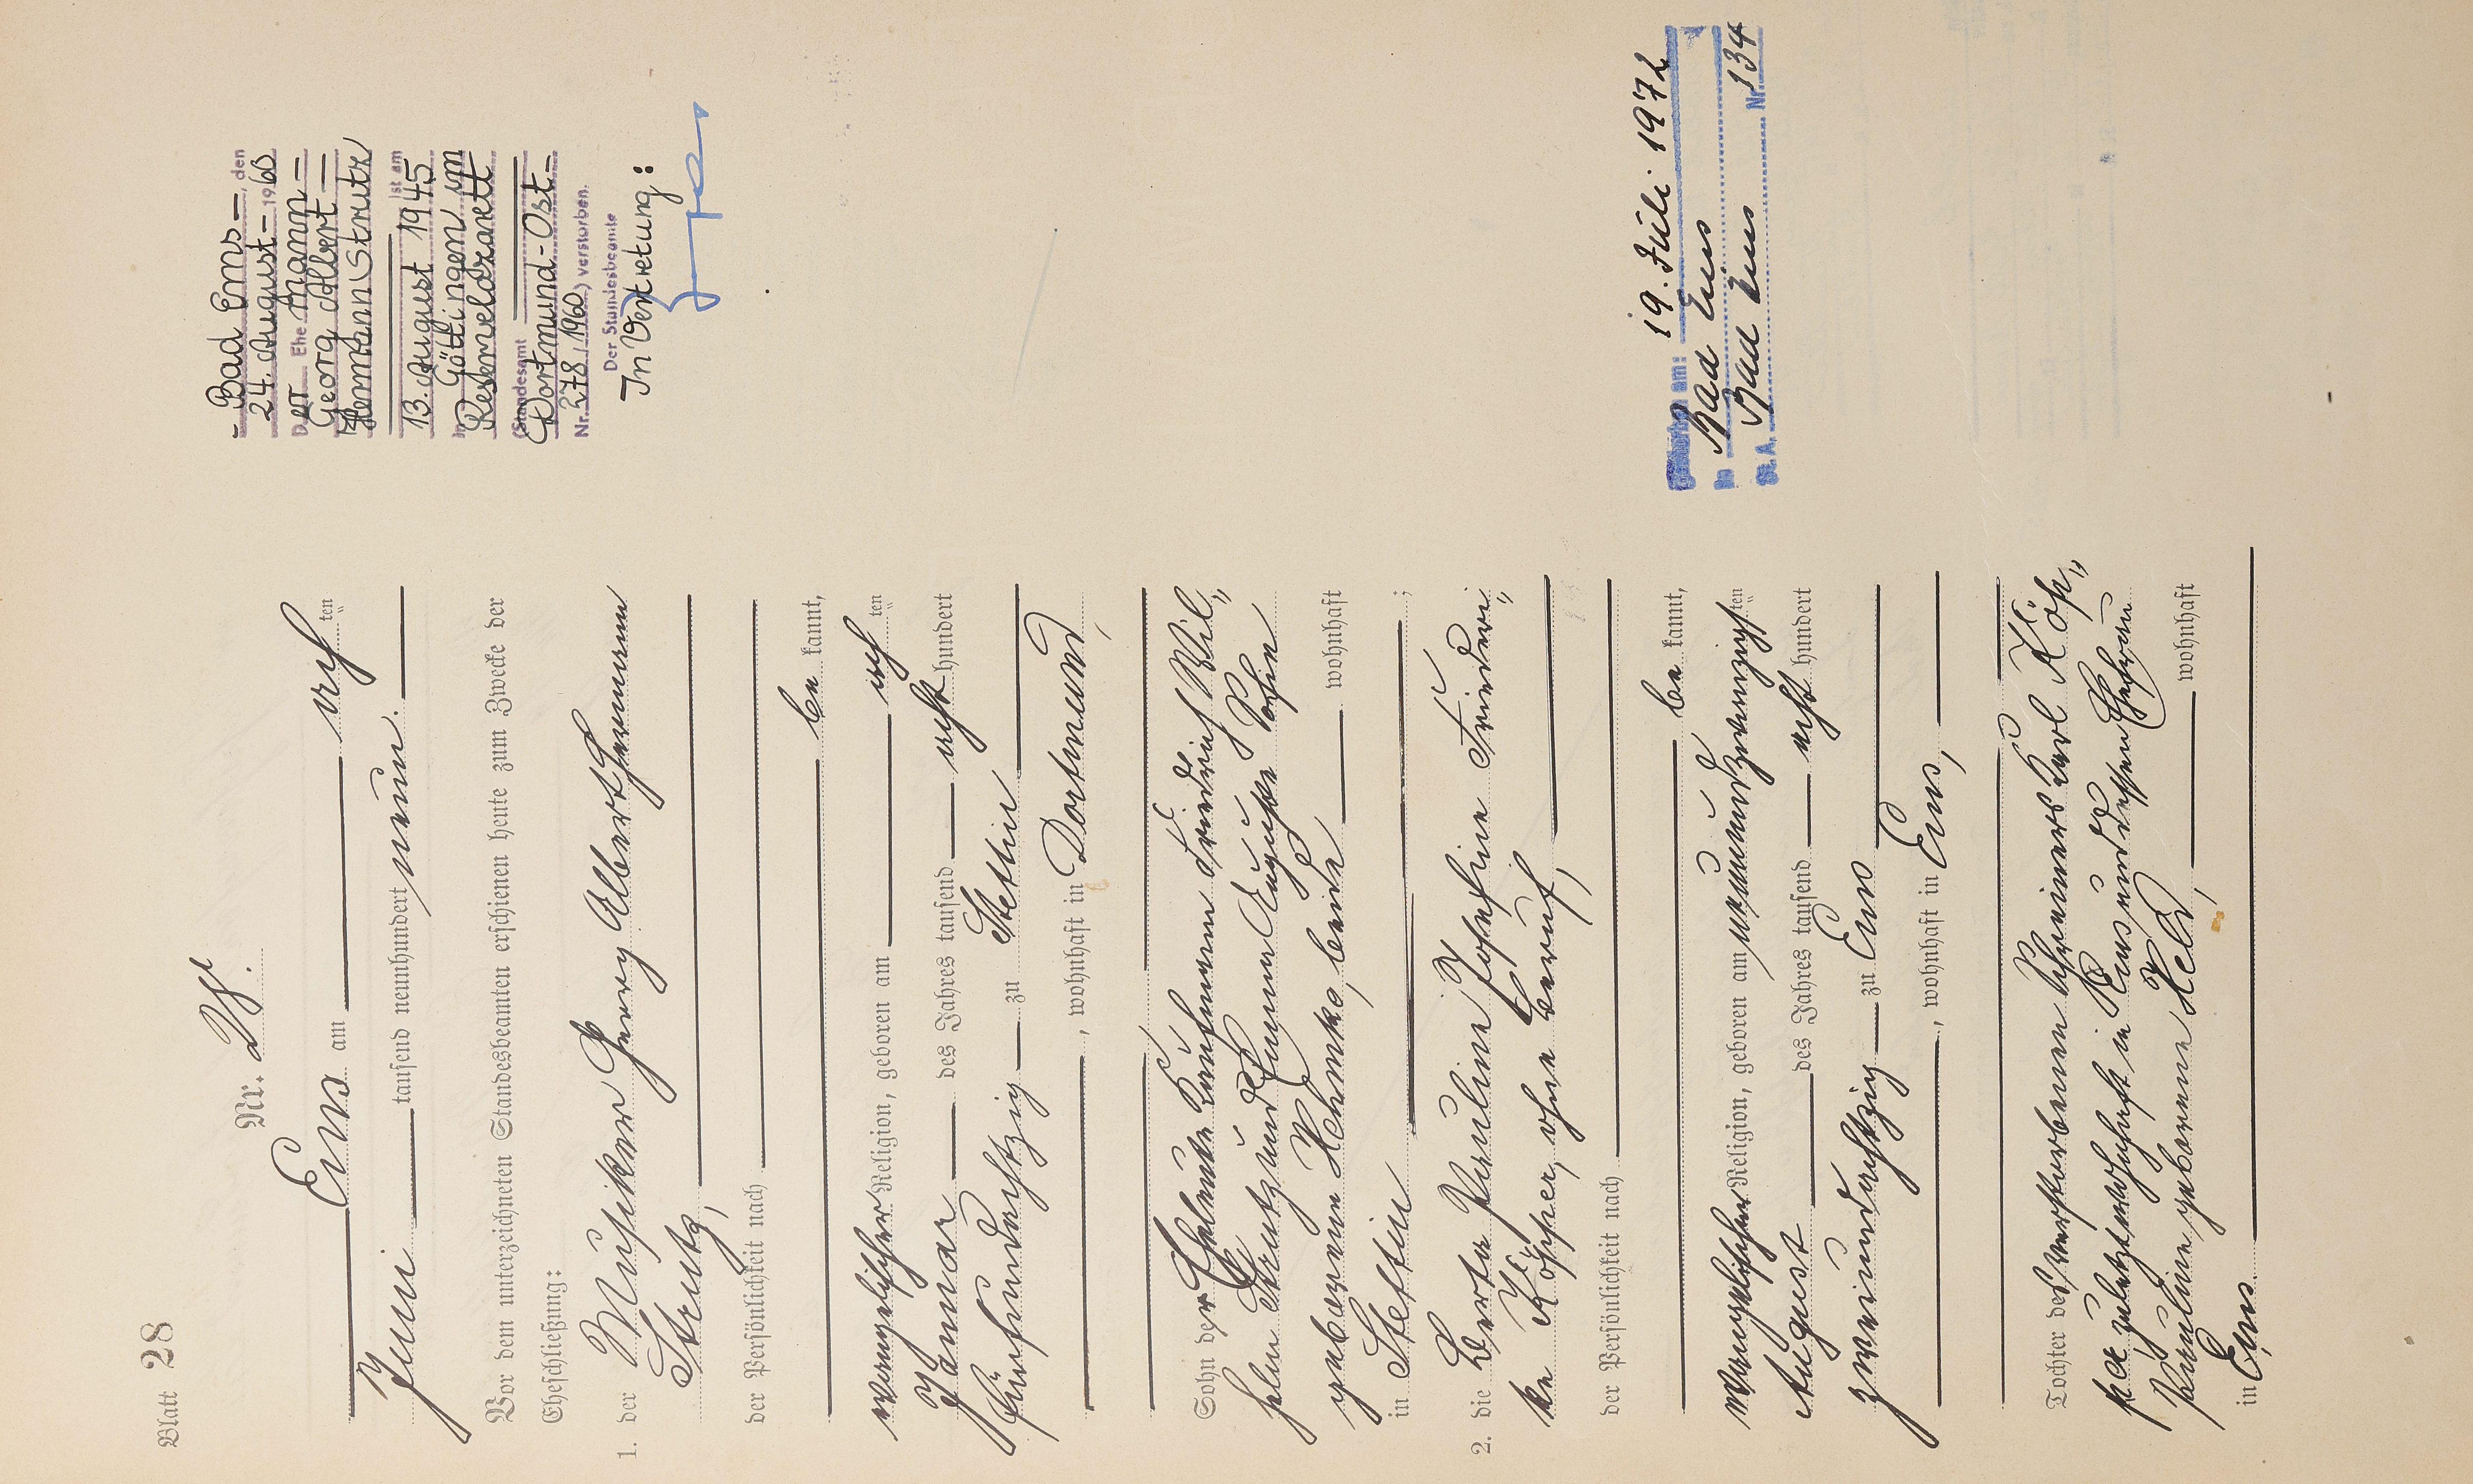 Blatt 28
Nr. 28.
Ems am acht ten
Juni tausend neunhundert neun.
Vor dem unterzeichneten Standesbeamten erschienen heute zum Zwecke der
Eheschließung:
1. der Musiker Georg Albert Hermann
Strutz,
der Persönlichkeit nach
be kannt,
evangelischer Religion, geboren am acht ten
Januar des Jahres tausend acht hundert
fünfundachtzig zu Stettin
, wohnhaft in Dortmund,
Sohn der Eheleute Kaufmann Friedrich Wil„
helm Strutz und Emma Auguste Sofie
geborenen Hehmke, beide wohnhaft
in Stettin ;
2. die Berta Pauline Josefine Friederi„
ke Köpper, ohne Beruf,
der Persönlichkeit nach
be kannt,
evangelischer Religion, geboren am neunundzwanzigs ten
August des Jahres tausend acht hundert
zweiundachtzig zu Ems
, wohnhaft in Ems,
Tochter des verstorbenen Schreiners Karl Köp„
per zuletzt wohnhaft in Ems und dessen Ehefrau
Pauline geborene Held, wohnhaft
in Ems.
- Bad Ems -, den
24. August - 1960
Der Ehe mann -
Georg Albert
Hermann Strutz
ist am
13. August 1945
in Göttingen im
Reservelazarett
(Standesamt
Dortmund-Ost -
Nr. 278/1960) verstorben.
Der Standesbeamte
In Vertretung:
am: 19. Juli 1972
in Bad Ems
St. A. Bad Ems Nr. 134